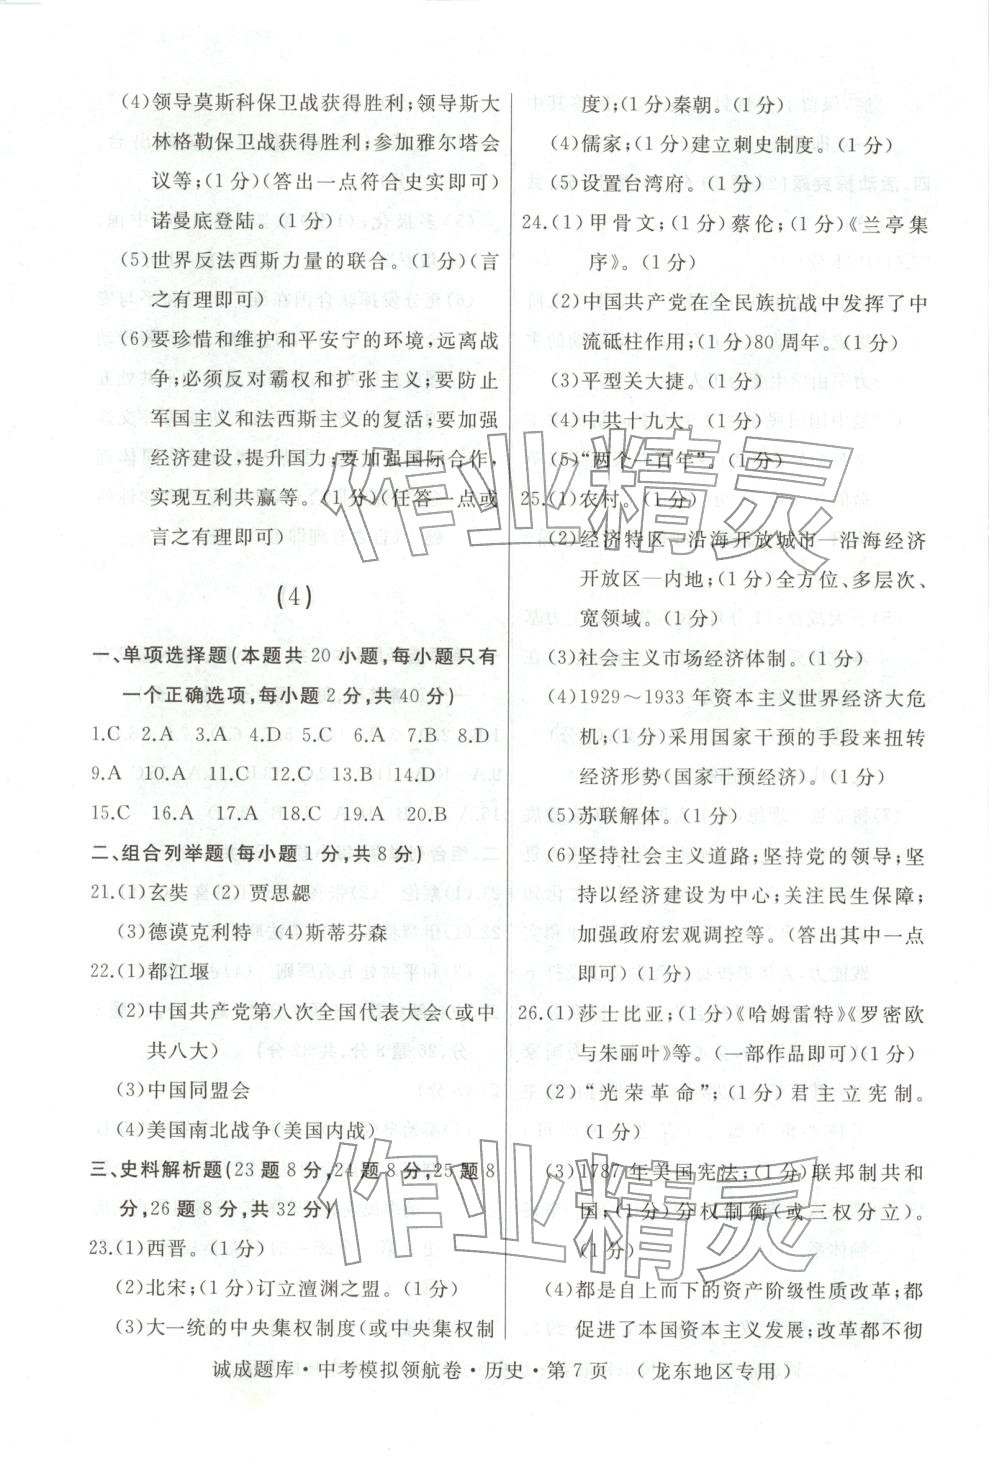 (4)领导莫斯科保卫战获得胜利;领导斯大
林格勒保卫战获得胜利;参加雅尔塔会
议等;(1分)(答出一点符合史实即可)
诺曼底登陆。(1分)
(5)世界反法西斯力量的联合。(1分)(言
之有理即可)
(6)要珍惜和维护和平安宁的环境,远离战
争;必须反对霸权和扩张主义;要防止
军国主义和法西斯主义的复活;要加强
经济建设,提升国力;要加强国际合作,
实现互利共赢等。(1分)(任答一点或
言之有理即可)
(4)
一、单项选择题(本题共20小题,每小题只有
一个正确选项,每小题2分,共40分)
1.C 2.A 3.A 4.D 5.C 6.A 7.B 8.D
9.A 10.A 11.C 12.C 13.B 14.D
15.C 16.A 17.A 18.C 19.A 20.B
二、组合列举题(每小题1分,共8分)
21.(1)玄奘 (2)贾思勰
(3)德谟克利特 (4)斯蒂芬森
22.(1)都江堰
(2)中国共产党第八次全国代表大会(或中
共八大)
(3)中国同盟会
(4)美国南北战争(美国内战)
三、史料解析题(23题8分,24题8分,25题8
分,26题8分,共32分)
23.(1)西晋。(1分)
(2)北宋;(1分)订立澶渊之盟。(1分)
(3)大一统的中央集权制度(或中央集权制
度);(1分)秦朝。(1分)
(4)儒家;(1分)建立刺史制度。(1分)
(5)设置台湾府。(1分)
24.(1)甲骨文;(1分)蔡伦;(1分)《兰亭集
序》。(1分)
(2)中国共产党在全民族抗战中发挥了中
流砥柱作用;(1分)80周年。(1分)
(3)平型关大捷。(1分)
(4)中共十九大。(1分)
(5)“两个一百年”。(1分)
25.(1)农村。(1分)
(2)经济特区—沿海开放城市—沿海经济
开放区—内地;(1分)全方位、多层次、
宽领域。(1分)
(3)社会主义市场经济体制。(1分)
(4)1929～1933年资本主义世界经济大危
机;(1分)采用国家干预的手段来扭转
经济形势(国家干预经济)。(1分)
(5)苏联解体。(1分)
(6)坚持社会主义道路;坚持党的领导;坚
持以经济建设为中心;关注民生保障;
加强政府宏观调控等。(答出其中一点
即可)(1分)
26.(1)莎士比亚;(1分)《哈姆雷特》《罗密欧
与朱丽叶》等。(一部作品即可)(1分)
(2)“光荣革命”;(1分)君主立宪制。
(1分)
(3)1787年美国宪法;(1分)联邦制共和
国;(1分)分权制衡(或三权分立)。
(1分)
(4)都是自上而下的资产阶级性质改革;都
促进了本国资本主义发展;改革都不彻
诚成题库·中考模拟领航卷·历史·第7页 (龙东地区专用)
作业精灵
作业精灵